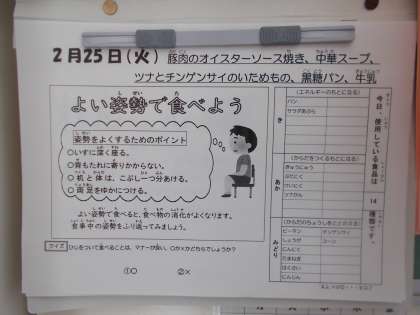 2月25日(火) 豚肉のオイスターソース焼き、中華スープ、
ツナとチンゲンサイのいためもの、黒糖パン、牛乳
よい姿勢で食べよう
姿勢をよくするためのポイント
○いすに深く座る。
○背もたれに寄りかからない。
○机と体は、こぶし一つ分あける。
○両足をゆかにつける。
よい姿勢で食べると、食べ物の消化がよくなります。
食事中の姿勢をふり返ってみましょう。
クイズ ひじをついて食べることは、マナーが良い。○か×かどちらでしょうか?
①○ ②×
今日、使用している食品は 14 種類です。
き
(エネルギーのもとになる)
パン
サラダあぶら
あか
(からだをつくるもとになる)
ぎゅうにゅう
ぶたにく
ツナかん
みどり
(からだのちょうしをととのえる)
ピーマン チンゲンサイ
しょうが コーン
にんにく
たまねぎ
はくさい
にんじん